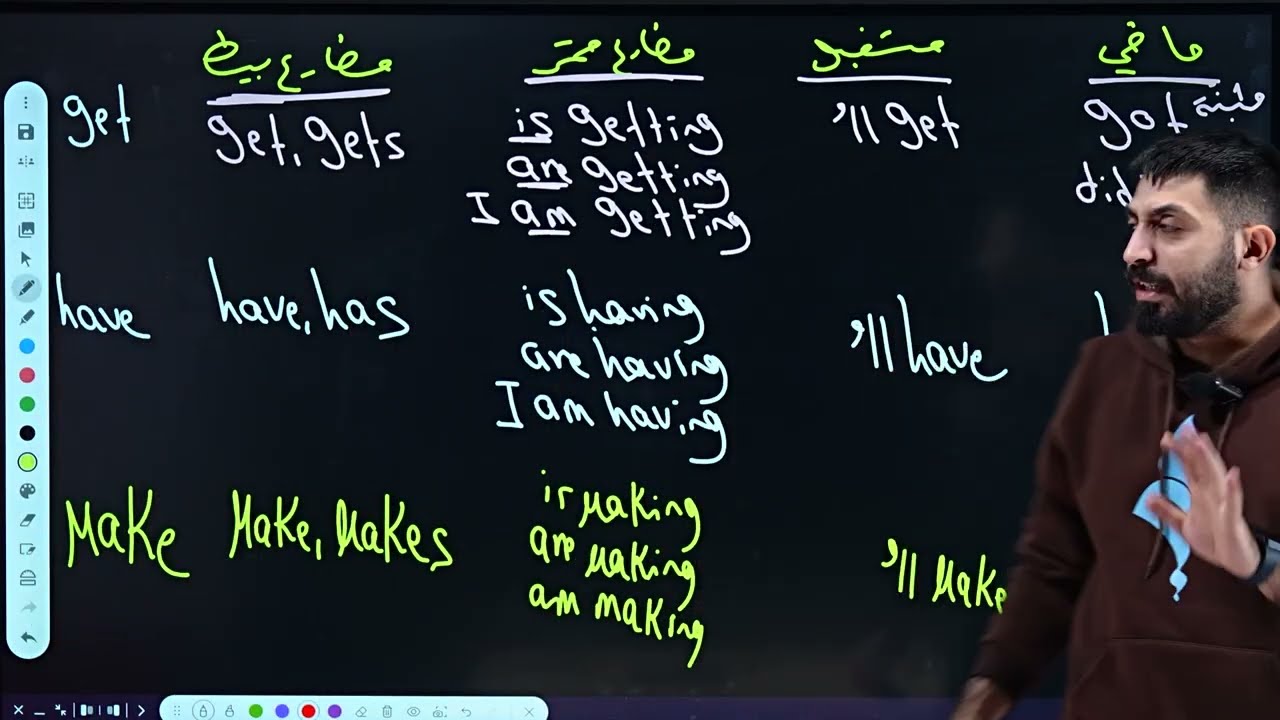 مضارع بسيط مضارع مستمر مستقبل ماضي
get get, gets is getting 'll get got مثبتة
are getting did
I am getting
have have, has is having 'll have
are having
I am having
Make Make, Makes is Making 'll Make
are Making
am making